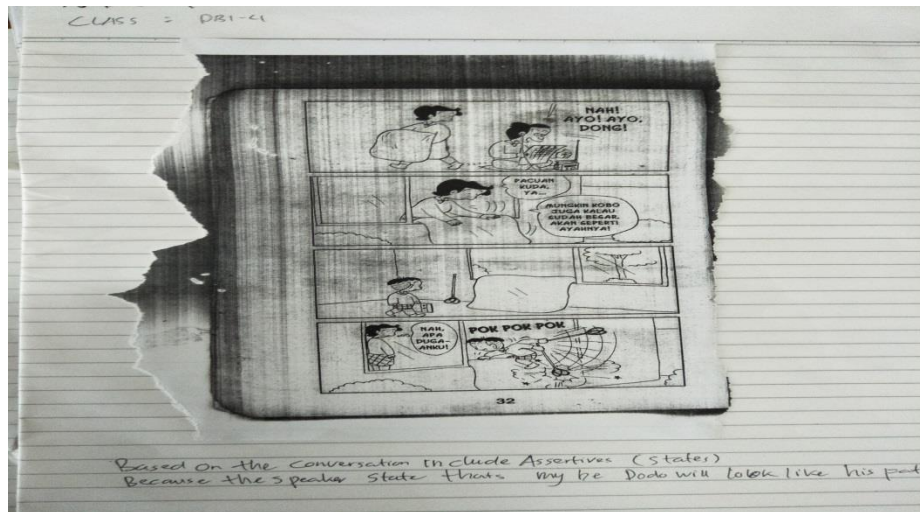 CLASS = DB1-4
NAH!
AYO! AYO,
DONG!
PACUAN
KUDA,
YA...
MUNGKIN KOBO
JUGA KALAU
SUDAH BESAR,
AKAN SEPERTI
AYAHNYA!
NAH,
APA
DUGA-
ANKU!
POK POK POK
32
Based on the conversation include Assertives (states)
Because the speaker state thats my be Dodo will lolok like his